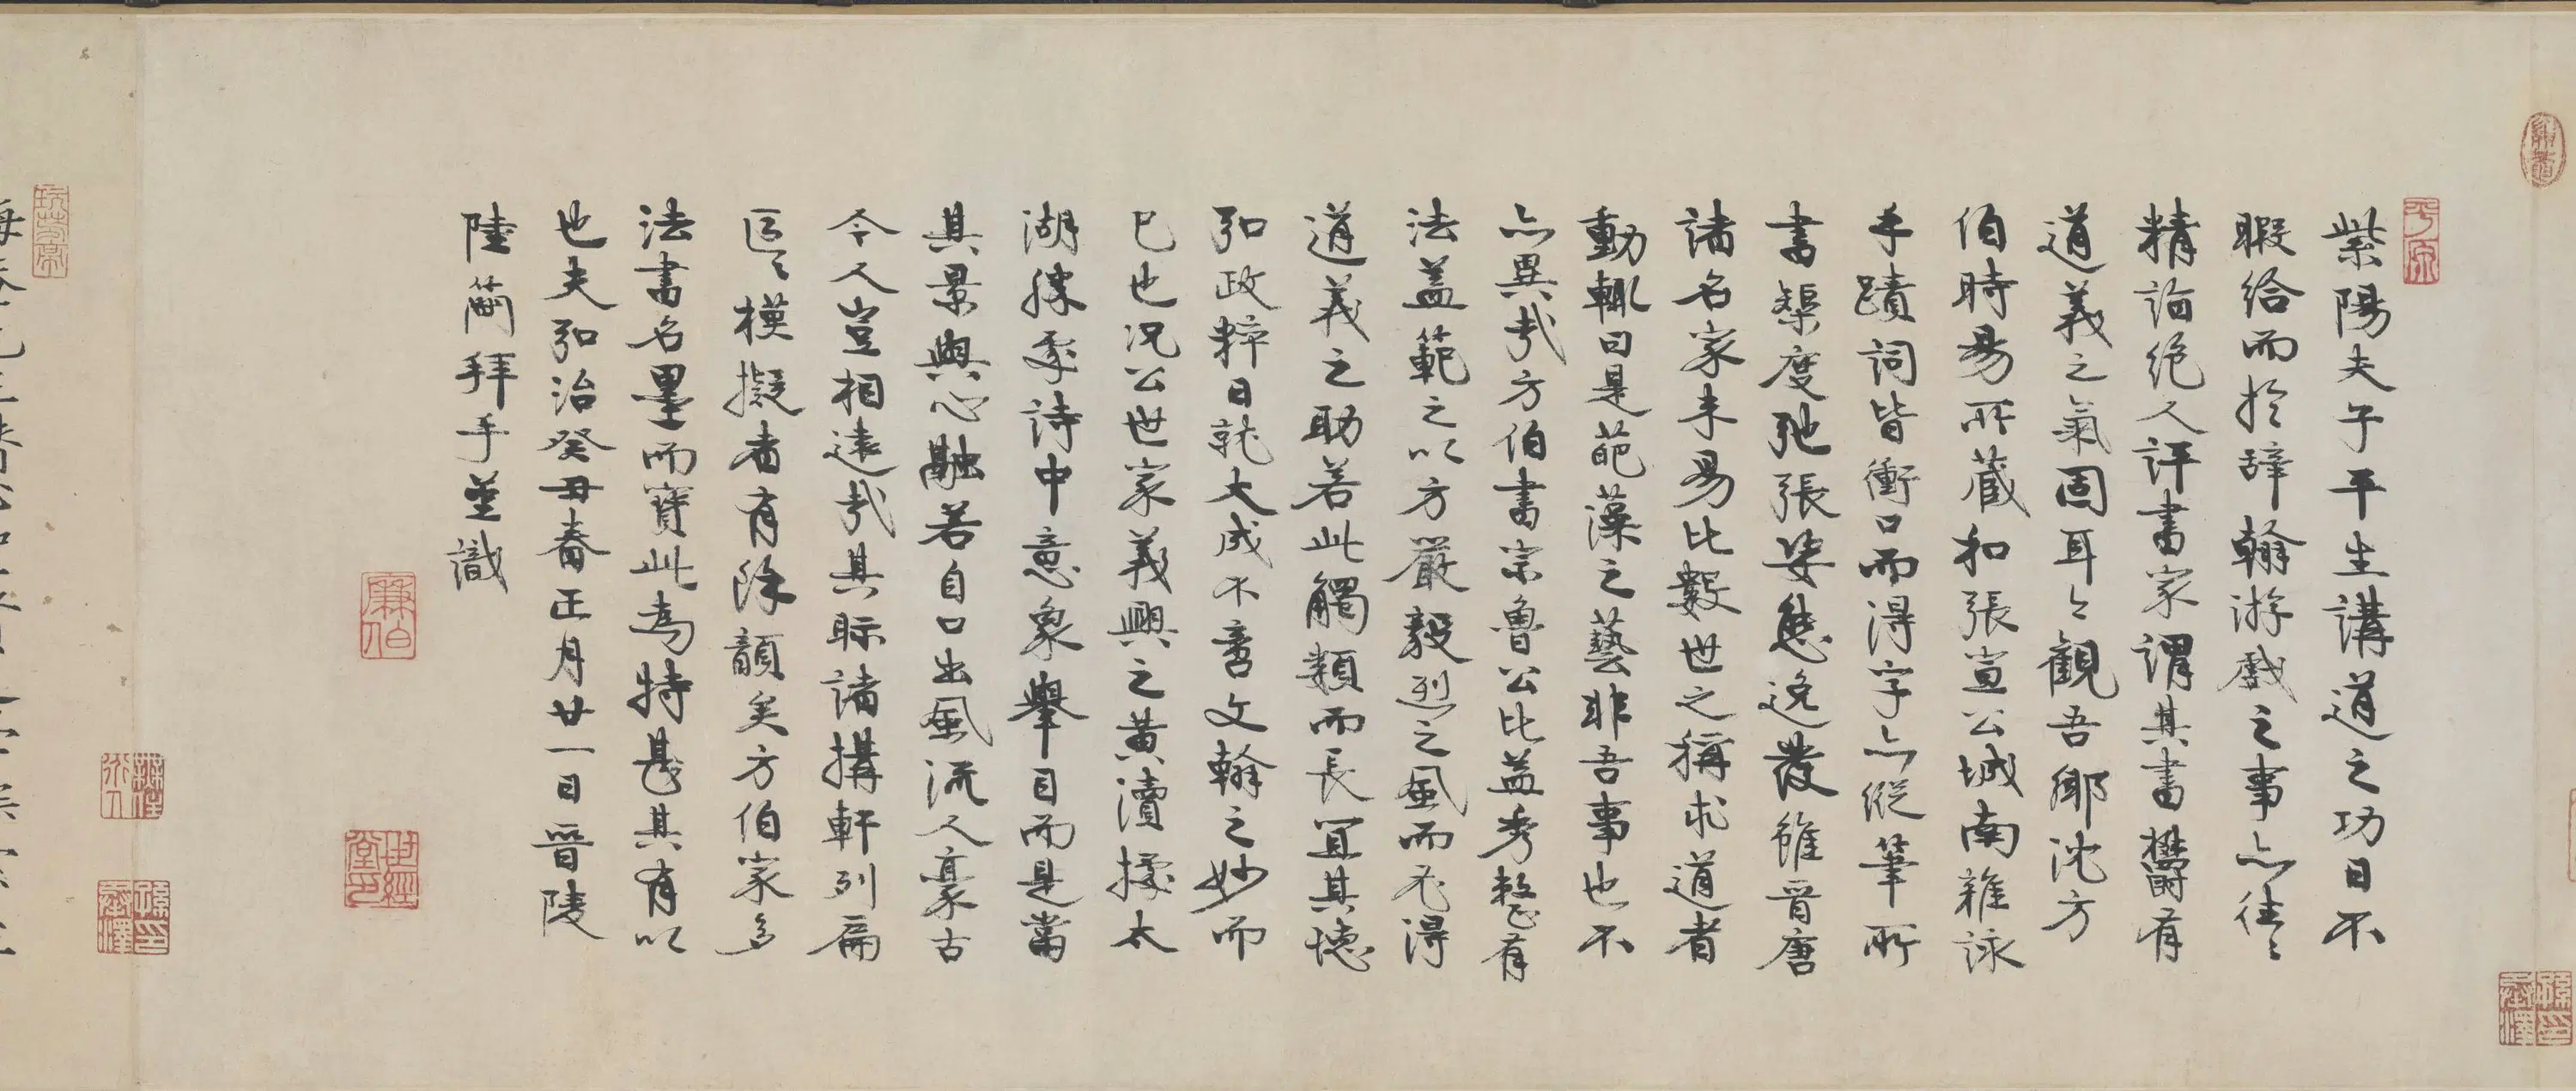 紫陽夫子平生講道之功日不
暇給而於辞翰游戲之事亦往〻
精詣絶人評書家謂其書欝有
道義之氣固耳今觀吾鄉沈方
伯時易所蔵和張宣公城南雜詠
手蹟詞皆衝口而得字亦縱筆所
書榘度弛張姿態逸發雖晋唐
諸名家未易比數世之稱求道者
動輒曰是葩藻之藝非吾事也不
亦異哉方伯書宗魯公比益秀整有
法盖範之以方嚴毅烈之風而尤得
道義之助若此觸類而長宜其徳
弘政粹日就大成不啻文翰之妙而
已也况公世家義興之黄瀆據太
湖勝處詩中意象舉目而是當
其景與心融若自口出風流人豪古
今人豈相遠哉其眎諸搆軒列扁
區〻模擬者有餘顔矣方伯家多
法書名墨而寳此為特甚其有以
也夫弘治癸丑春正月廿一日晋陵
陸簡拜手謹識
平原
廉伯